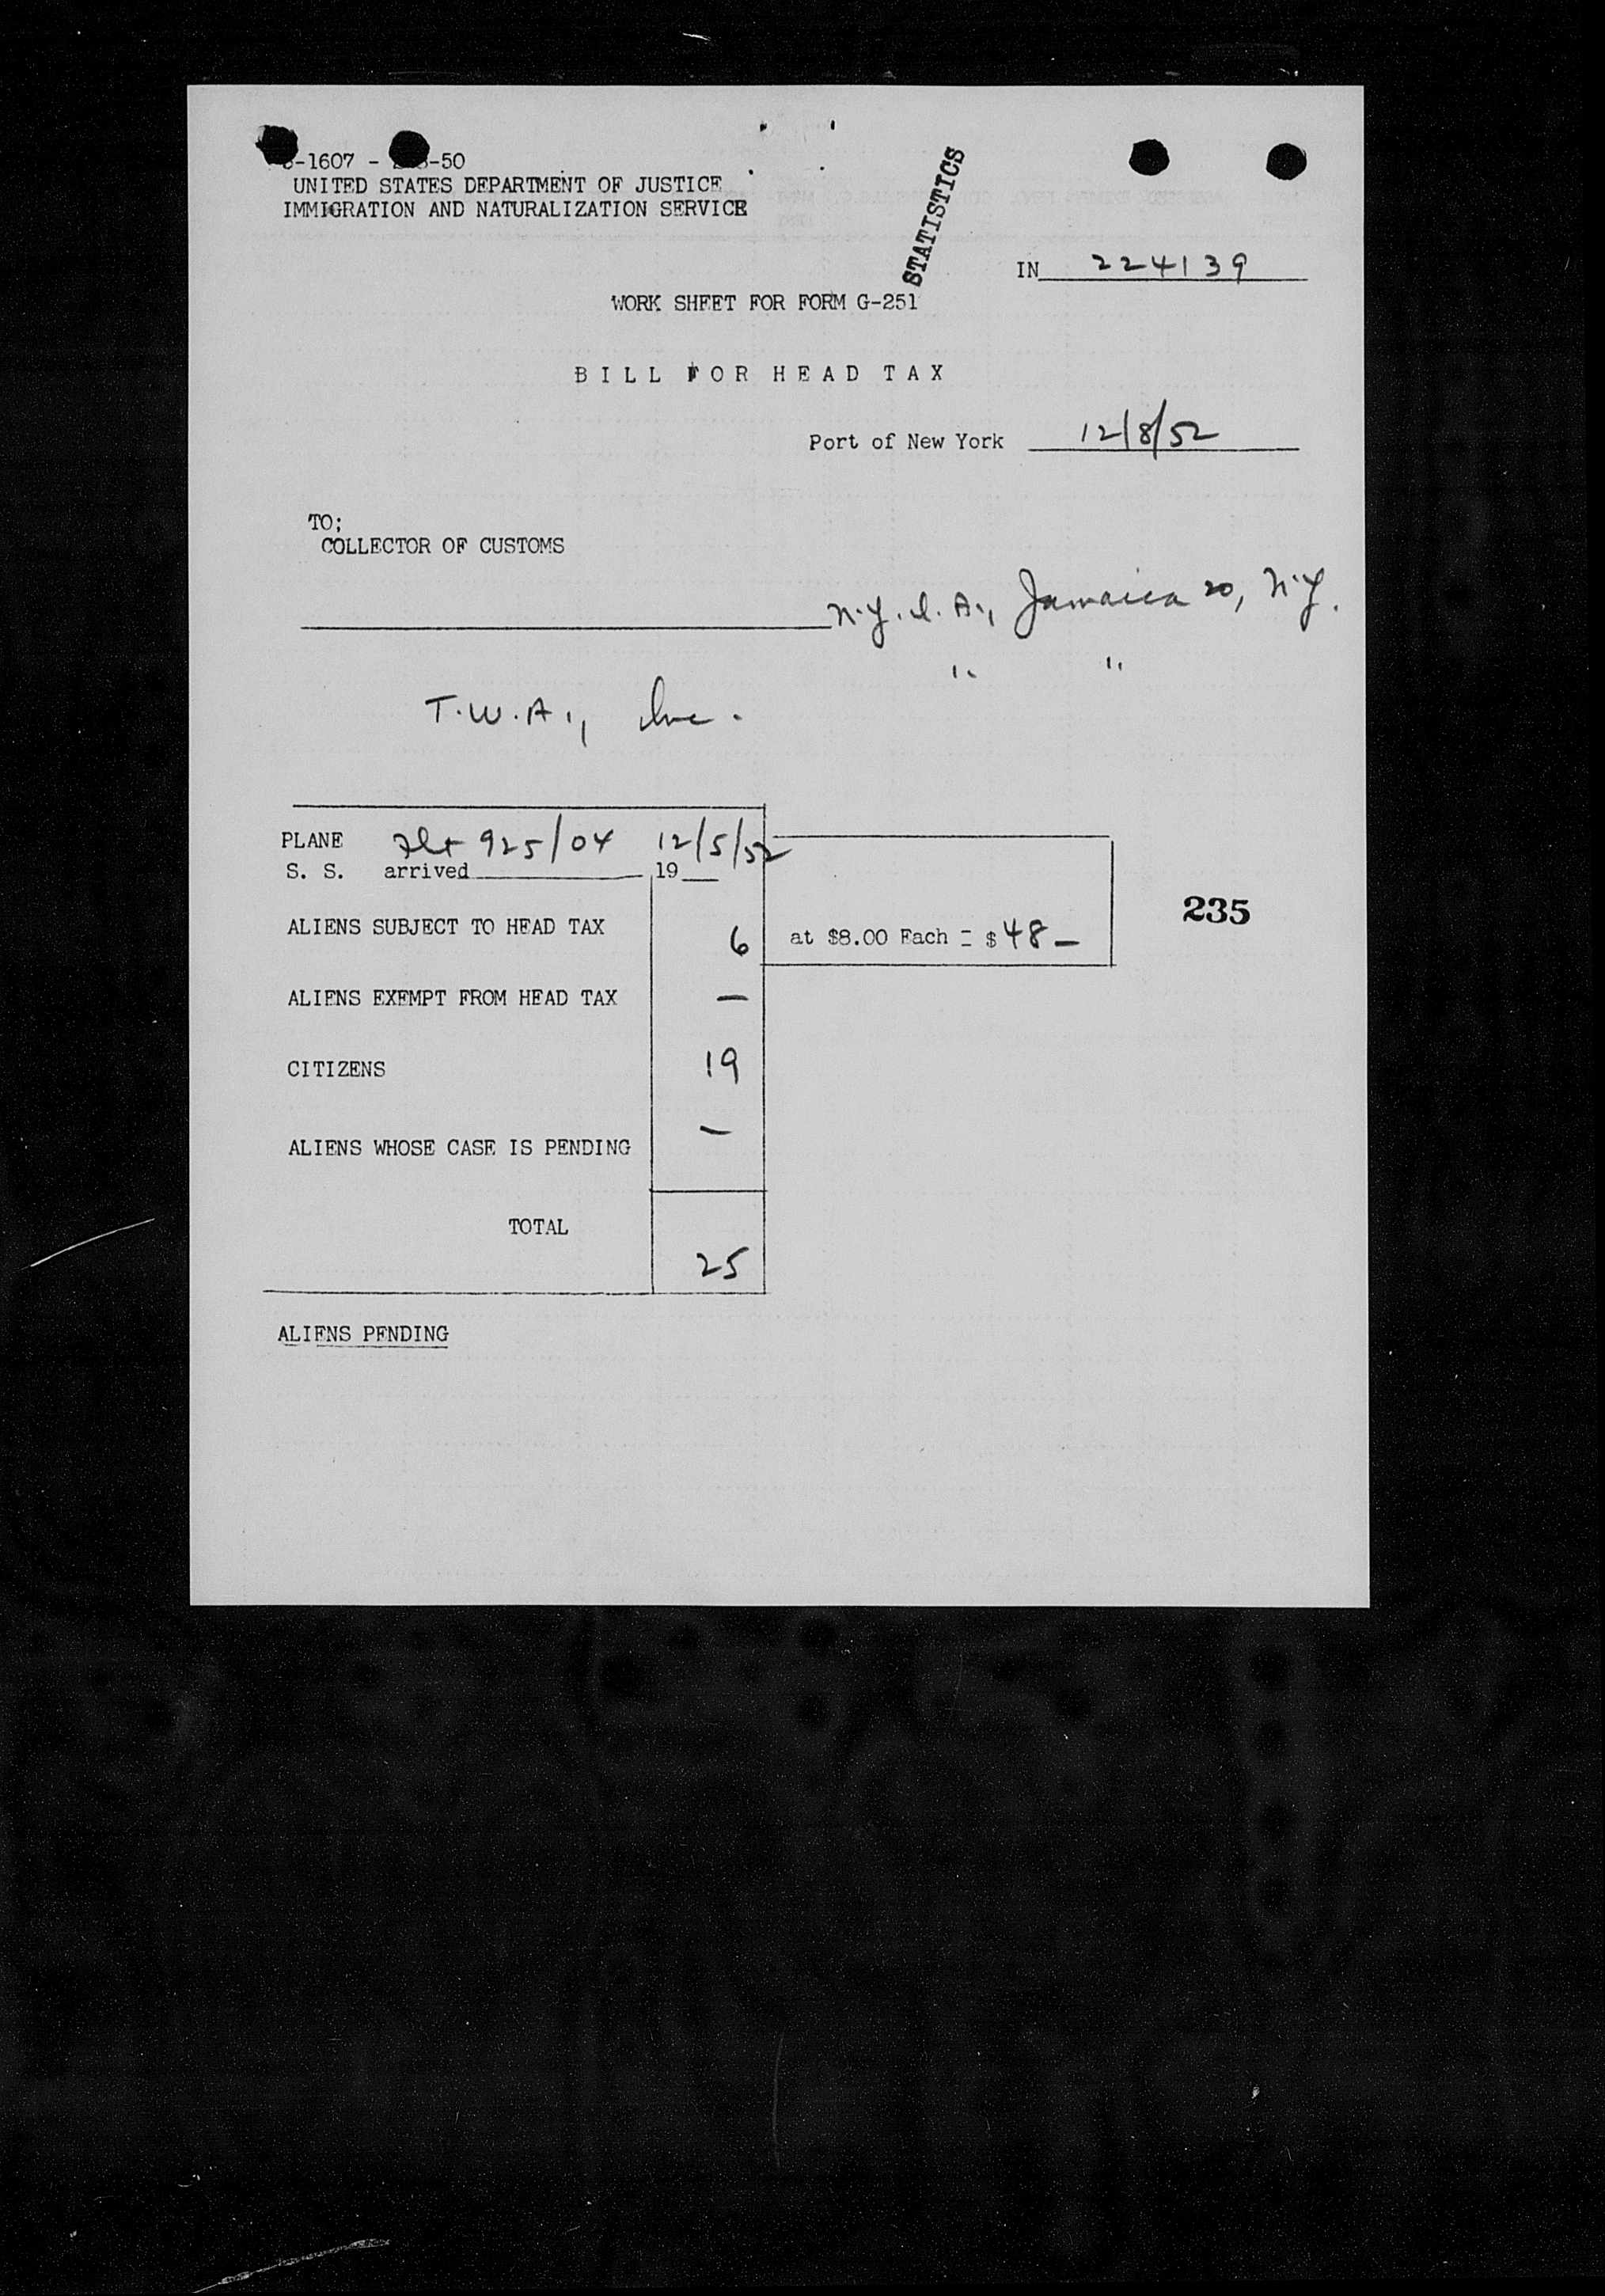 -1607 - -50
UNITED STATES DEPARTMENT OF JUSTICE
IMMIGRATION AND NATURALIZATION SERVICE
STATISTICS
IN 224139
WORK SHEET FOR FORM G-251
BILL FOR HEAD TAX
Port of New York 12/8/52
TO;
COLLECTOR OF CUSTOMS
N.Y.I.A., Jamaica 20, N.Y.
" "
T.W.A., Inc.
PLANE Flt 925/04 12/5/52
S. S. arrived 19
ALIENS SUBJECT TO HEAD TAX 6 at $8.00 Each = $48—
235
ALIENS EXEMPT FROM HEAD TAX —
CITIZENS 19
ALIENS WHOSE CASE IS PENDING —
TOTAL
25
ALIENS PENDING